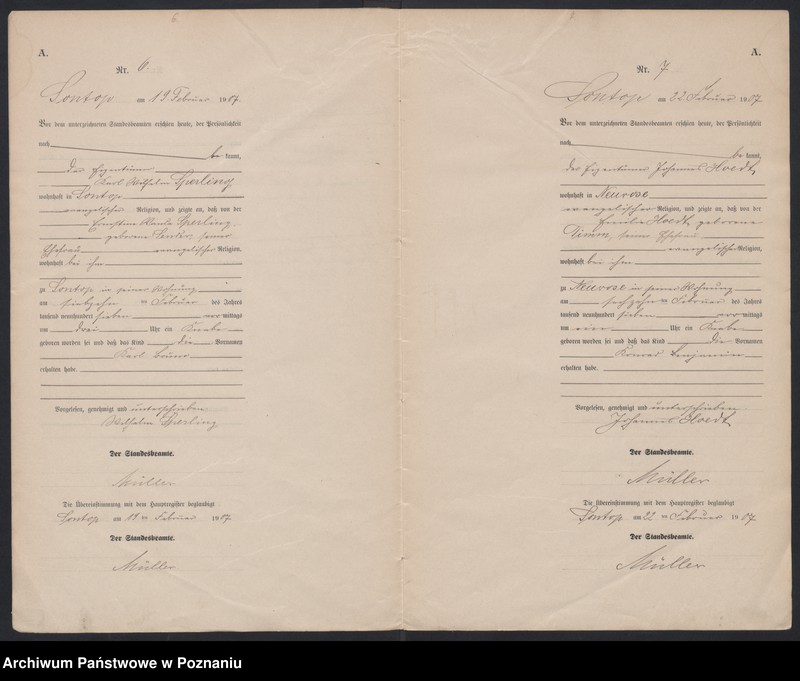 6.
A.
Nr. 6.
Sontop am 19 Februar 1907.
Vor dem unterzeichneten Standesbeamten erschien heute, der Persönlichkeit
nach
be kannt,
der Eigentümer
Karl Wilhelm Sperling
wohnhaft in Sontop
evangelischer Religion, und zeigte an, daß von der
Ernestine Sperling
geborene seiner
Ehefrau evangelischer Religion,
wohnhaft bei ihm
zu Sontop in seiner Wohnung
am siebzehn ten Februar des Jahres
tausend neunhundert sieben vor mittags
um drei Uhr ein Knabe
geboren worden sei und daß das Kind die Vornamen
Karl Bruno
erhalten habe.
Vorgelesen, genehmigt und unterschrieben
Wilhelm Sperling
Der Standesbeamte.
Müller
Die Übereinstimmung mit dem Hauptregister beglaubigt
Sontop am 19 ten Februar 1907.
Der Standesbeamte.
Müller
A.
Nr. 7
Sontop am 22 Februar 1907
Vor dem unterzeichneten Standesbeamten erschien heute, der Persönlichkeit
nach
be kannt,
der Eigentümer Johannes Hoedt
wohnhaft in Neurose
evangelischer Religion, und zeigte an, daß von der
Emilie Hoedt geborene
Timm, seiner Ehefrau
evangelischer Religion,
wohnhaft bei ihm
zu Neurose in seiner Wohnung
am sechzehn ten Februar des Jahres
tausend neunhundert sieben vor mittags
um Uhr ein Knabe
geboren worden sei und daß das Kind die Vornamen
Konrad Benjamin
erhalten habe.
Vorgelesen, genehmigt und unterschrieben
Johannes Hoedt
Der Standesbeamte.
Müller
Die Übereinstimmung mit dem Hauptregister beglaubigt
Sontop am 22 ten Februar 1907.
Der Standesbeamte.
Müller
Archiwum Państwowe w Poznaniu